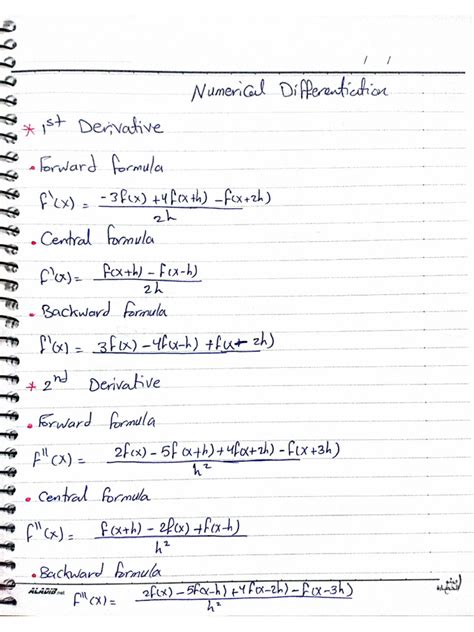 / /
Numerical Differentiation
* 1st Derivative
• Forward formula
f'(x) = -3f(x) + 4f(x+h) - f(x+2h) / 2h
• Central formula
f'(x) = f(x+h) - f(x-h) / 2h
• Backward formula
f'(x) = 3f(x) - 4f(x-h) + f(x-2h)
* 2nd Derivative
• Forward formula
f''(x) = 2f(x) - 5f(x+h) + 4f(x+2h) - f(x+3h) / h²
• Central formula
f''(x) = f(x+h) - 2f(x) + f(x-h) / h²
• Backward formula
ALADIB
f''(x) = 2f(x) - 5f(x-h) + 4f(x-2h) - f(x-3h) / h²